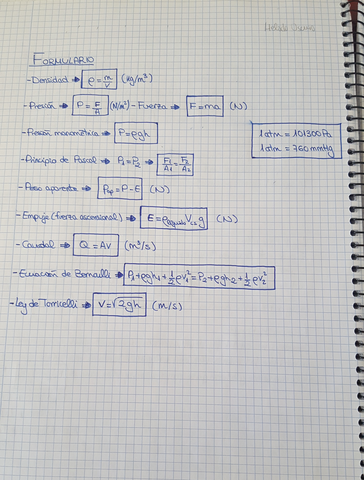 FORMULARIO
- Densidad → ρ = m/V (kg/m³)
- Presión → P = F/A (N/m²) - Fuerza → F = ma (N)
- Presión manométrica → P = ρgh
1 atm = 101300 Pa
1 atm = 760 mmHg
- Principio de Pascal → P₁ = P₂ → F₁/A₁ = F₂/A₂
- Peso aparente → Pap = P - E (N)
- Empuje (fuerza ascensional) → E = ρlíquido Vc.s g (N)
- Caudal → Q = AV (m³/s)
- Ecuación de Bernoulli → P₁ + ρgh₁ + ½ρv₁² = P₂ + ρgh₂ + ½ρv₂²
- Ley de Torricelli → V = √2gh (m/s)